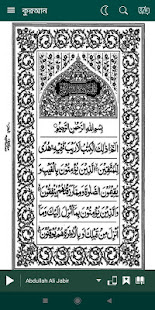 কুরআন
بِسْمِ اللهِ الرَّحْمٰنِ الرَّحِيْمِ
الٓمّٓ ذٰلِكَ الْكِتٰبُ لَا رَيْبَ فِيْهِ هُدًى
لِّلْمُتَّقِيْنَ الَّذِيْنَ يُؤْمِنُوْنَ بِالْغَيْبِ وَ
يُقِيْمُوْنَ الصَّلٰوةَ وَمِمَّا رَزَقْنٰهُمْ يُنْفِقُوْنَ
وَالَّذِيْنَ يُؤْمِنُوْنَ بِمَآ اُنْزِلَ اِلَيْكَ وَ
مَآ اُنْزِلَ مِنْ قَبْلِكَ وَبِالْاٰخِرَةِ هُمْ يُوْقِنُوْنَ
Abdullah Ali Jabir